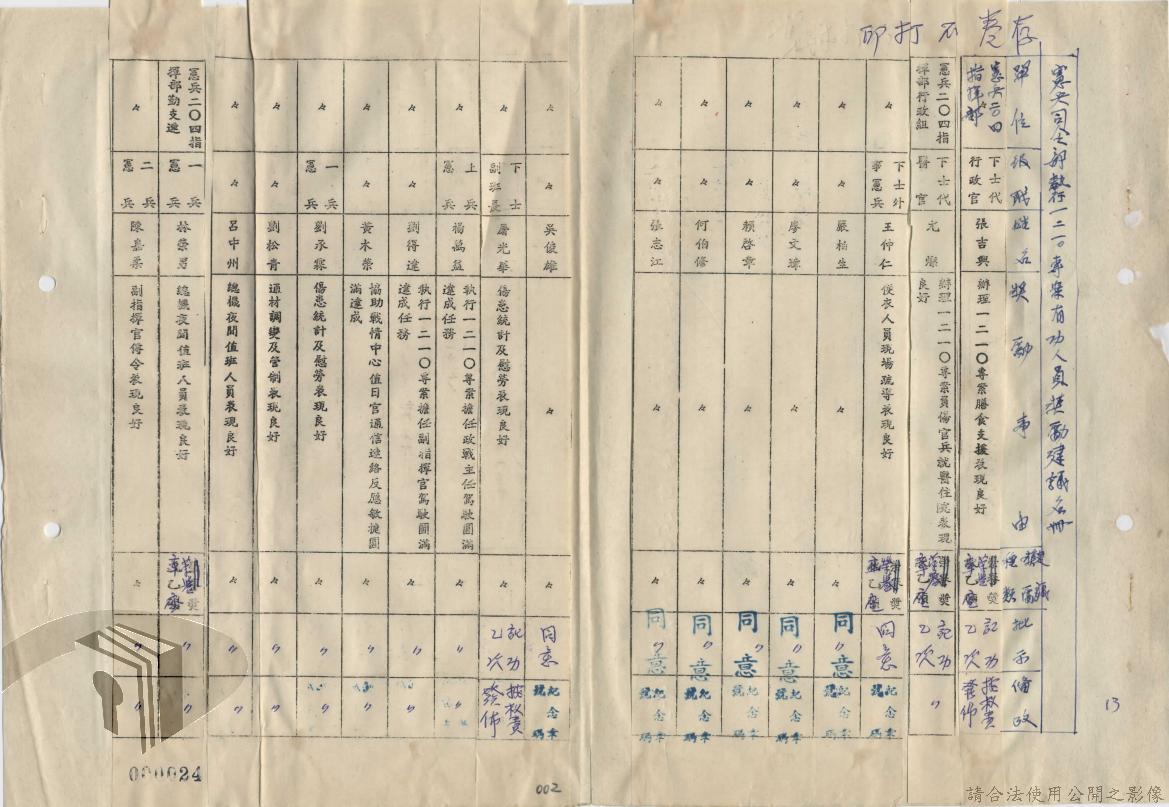 存卷不打印
憲兵司令部執行一二一〇專案有功人員獎勵建議名冊
單位
級職
姓名
獎勵事由
擬議獎勵種類
批示
備考
憲兵二〇四指揮部
下士代行政官
張吉興
辦理一二一〇專案膳食支援表現良好
獎章乙座
記功乙次
按權責發佈
憲兵二〇四指揮部行政組
下士代醫官
尤
辦理一二一〇專案員傷官兵就醫住院表現良好
獎章乙座
記功乙次
〃
〃
下士外事憲兵
王仲仁
便衣人員現場疏導表現良好
獎章乙座
同意
紀念章
號碼
〃
〃
嚴柏生
〃
〃
同意
紀念章
號碼
〃
〃
廖文瑋
〃
〃
同意
〃
紀念章
號碼
〃
〃
賴啓章
〃
〃
同意
〃
紀念章
號碼
〃
〃
何伯修
〃
〃
同意
〃
紀念章
號碼
〃
〃
張志江
〃
〃
同意
〃
紀念章
號碼
〃
〃
吳俊雄
〃
〃
同意
紀念章
號碼
〃
下士副班長
屠光華
傷患統計及慰勞表現良好
〃
記功乙次
按權責發佈
〃
上兵憲兵
楊萬益
執行一二一〇專案擔任政戰主任駕駛圓滿達成任務
〃
〃
〃
〃
〃
劉得達
執行一二一〇專案擔任副指揮官駕駛圓滿達成任務
〃
〃
〃
〃
〃
黃木榮
協助戰情中心值日官通信連絡反應敏捷圓滿達成
〃
〃
〃
〃
一兵憲兵
劉承霖
傷患統計及慰勞表現良好
〃
〃
〃
〃
〃
劉松青
通材調變及管制表現良好
〃
〃
〃
〃
〃
呂中州
總機夜間值班人員表現良好
〃
〃
〃
憲兵二〇四指揮部勤支連
一兵憲兵
林榮男
總機夜間值班人員表現良好
獎章乙座
〃
〃
〃
二兵憲兵
陳嘉柔
副指揮官傳令表現良好
〃
〃
〃
13
000024
002
請合法使用公開之影像